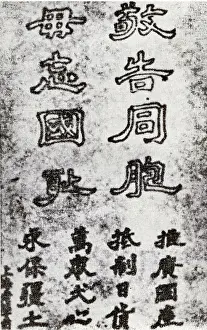 敬告同胞
毋忘國恥
推廣國產
抵制日貨
萬衆一心
永保疆土